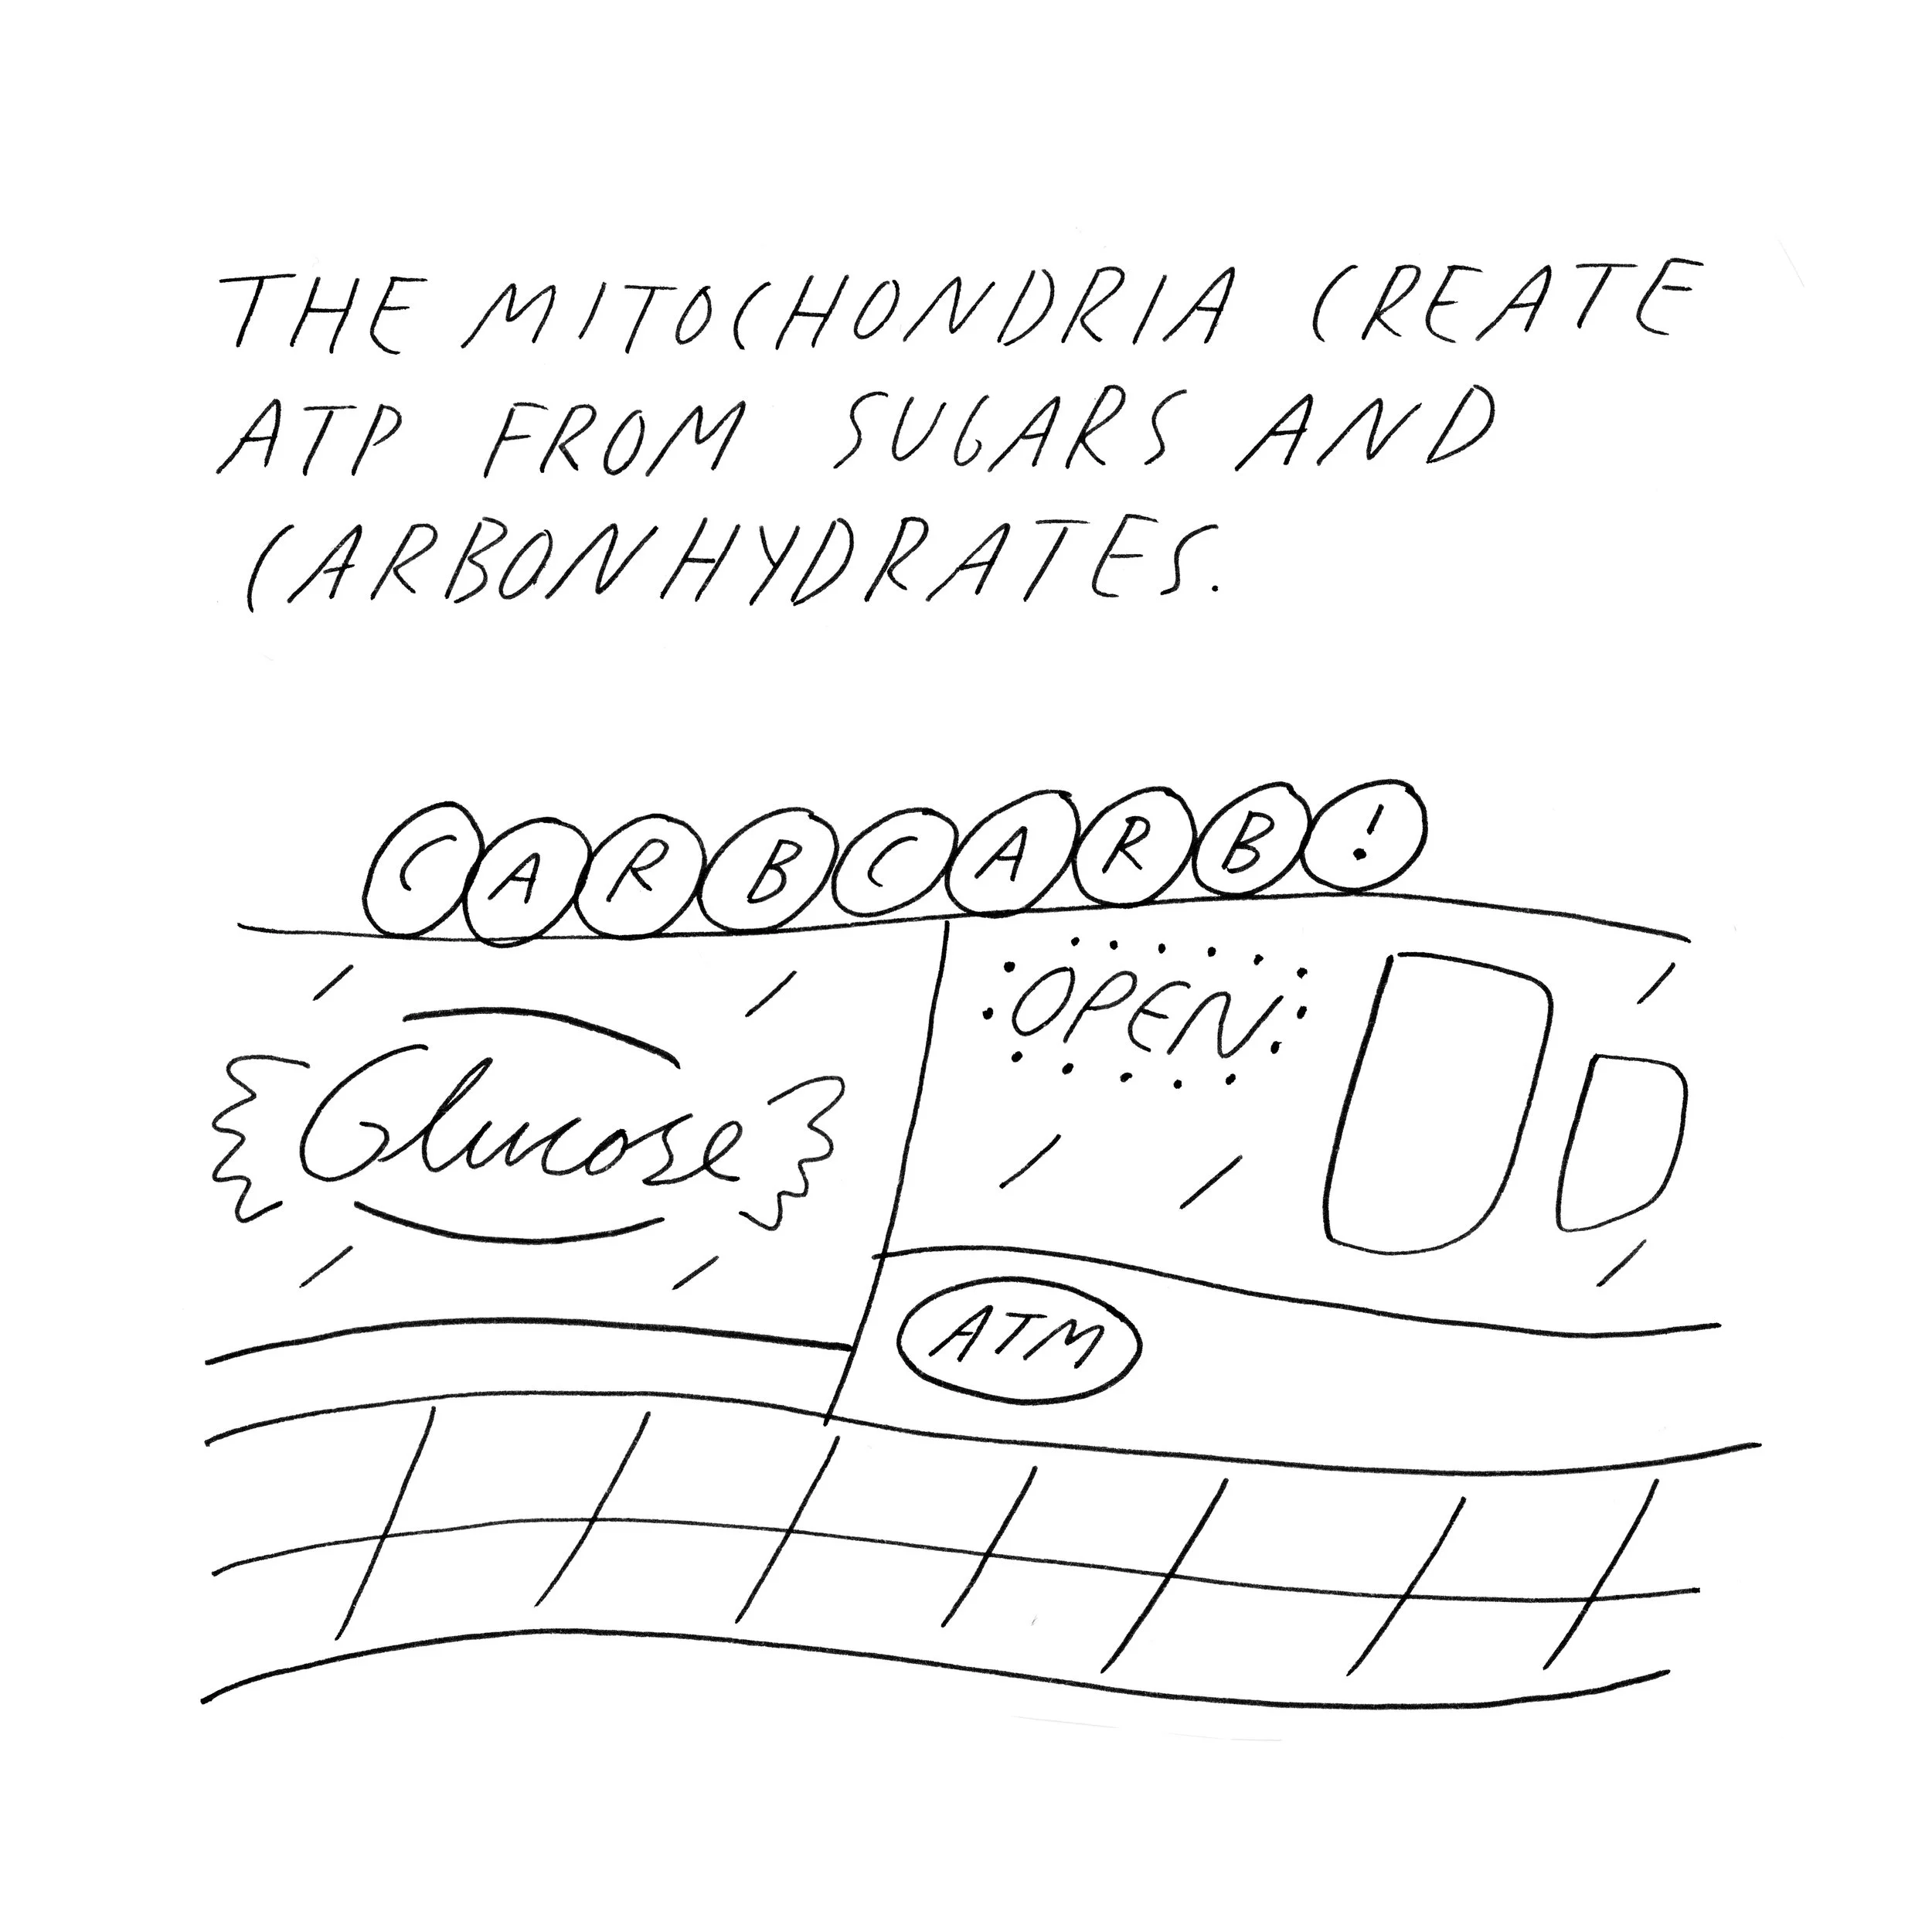 THE MITOCHONDRIA CREATE
ATP FROM SUGARS AND
CARBONHYDRATES.
CARBCARB!
OPEN
Glucose
ATM